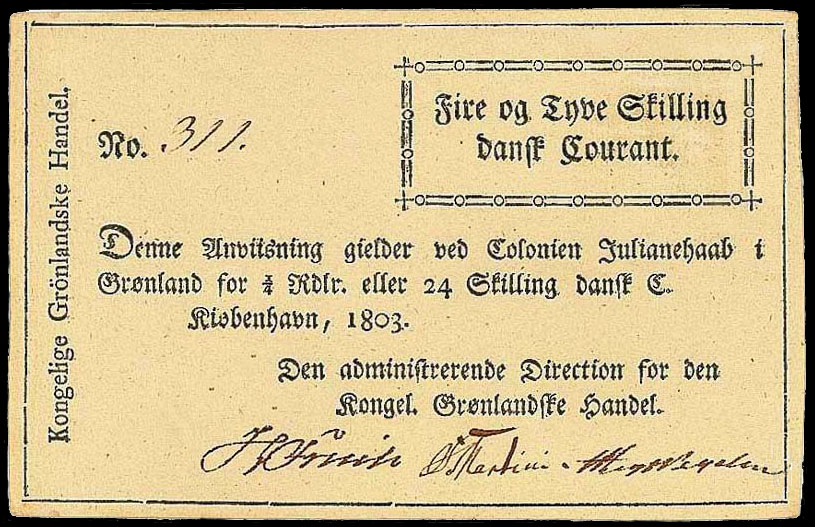 Kongelige Grönlandske Handel.
No. 311.
Fire og Tyve Skilling
dansk Courant.
Denne Anviisning gielder ved Colonien Julianehaab i
Grønland for ¼ Rdlr. eller 24 Skilling dansk C.
Kiøbenhavn, 1803.
Den administrerende Direction for den
Kongel. Grønlandske Handel.